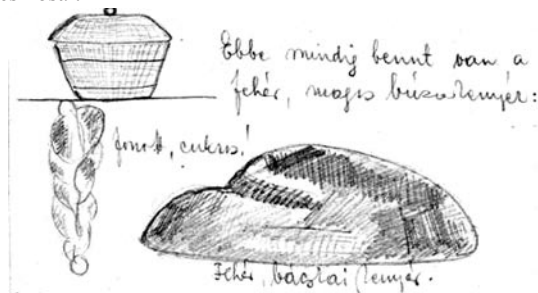 Ebbe mindig bennt van a
fehér, magos búzakenyér:
fonott, cukros!
Fehér, bácskai kenyér.